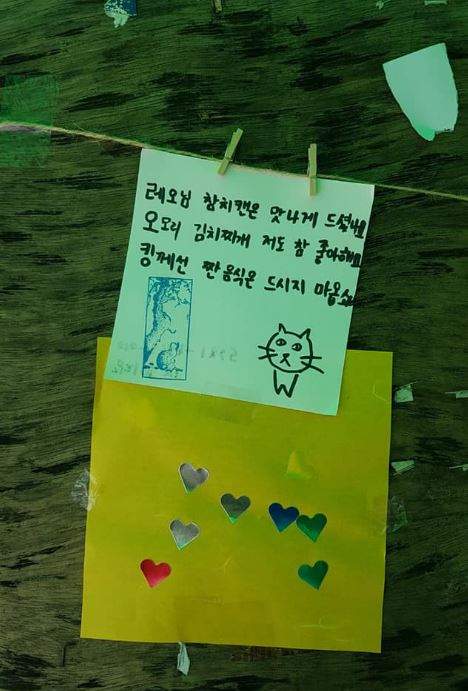 레오님 참치캔은 맛나게 드셨나요
오도리 김치찌개 저도 참 좋아해요
킹께선 짠 음식은 드시지 마옵소서